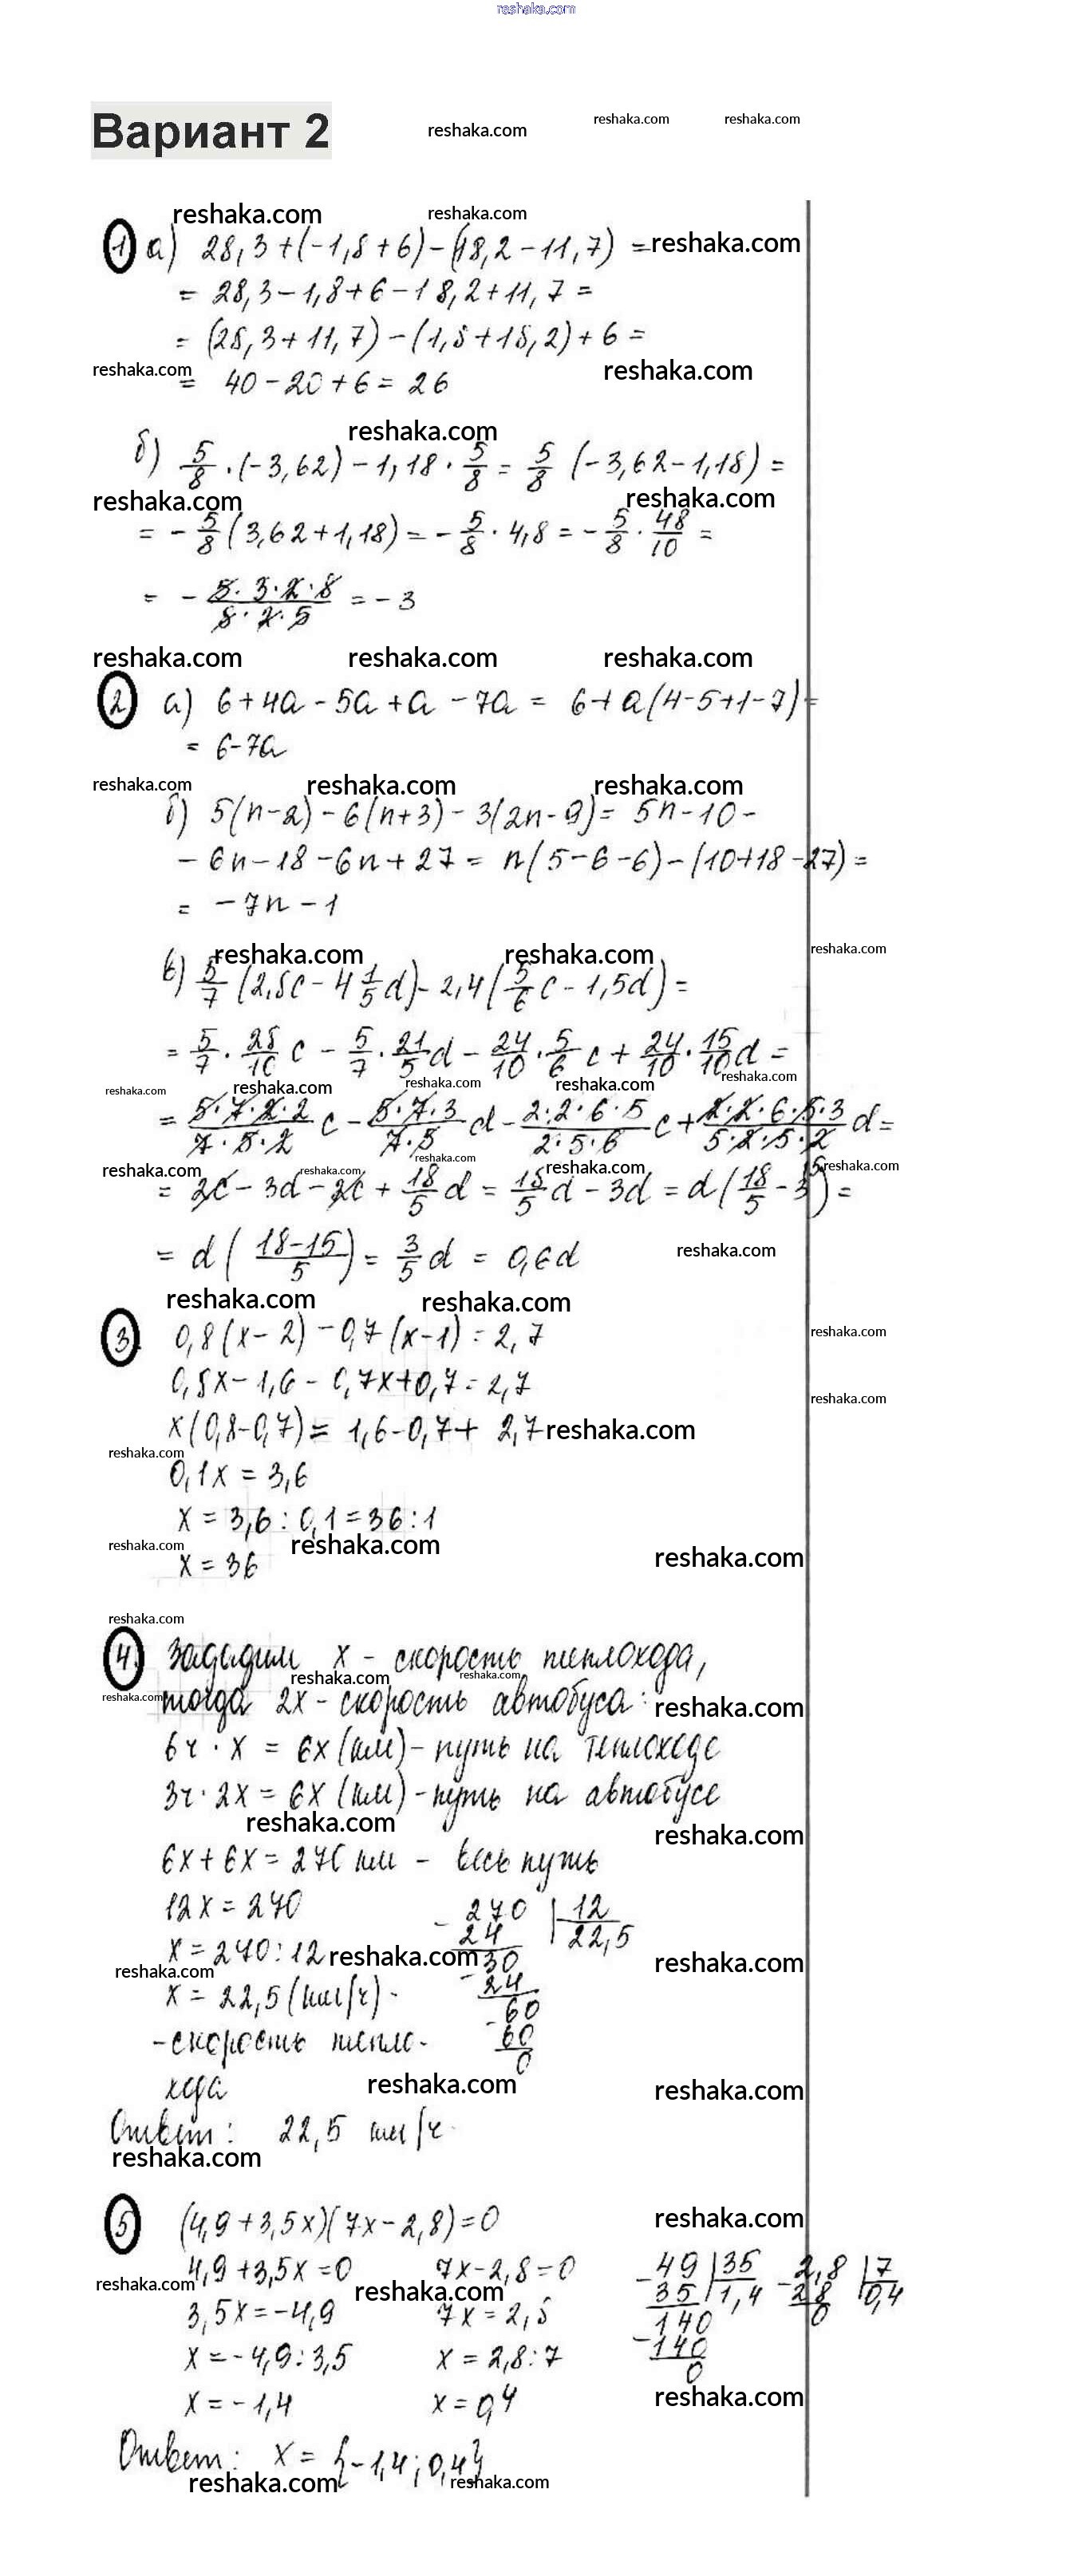 reshaka.com
Вариант 2
reshaka.com reshaka.com reshaka.com
reshaka.com reshaka.com
1 а) 28,3+(-1,8+6)-(18,2-11,7) = reshaka.com
= 28,3-1,8+6-18,2+11,7 =
= (28,3+11,7)-(1,8+18,2)+6 =
reshaka.com reshaka.com
= 40-20+6=26
reshaka.com
б) 5/8 · (-3,62) - 1,18 · 5/8 = 5/8 (-3,62-1,18) =
reshaka.com reshaka.com
= - 5/8 (3,62+1,18) = - 5/8 · 4,8 = - 5/8 · 48/10 =
= - 5·3·2·8/8·2·5 = -3
reshaka.com reshaka.com reshaka.com
2 а) 6+4a-5a+a-7a = 6+a(4-5+1-7) =
= 6-7a
reshaka.com reshaka.com reshaka.com
б) 5(n-2)-6(n+3)-3(2n-9)= 5n-10-
-6n-18-6n+27 = n(5-6-6)-(10+18-27) =
= -7n-1
reshaka.com reshaka.com reshaka.com
в) 5/7 (2,8c - 4 1/5 d) - 2,4 (5/6 c - 1,5d) =
= 5/7 · 28/10 c - 5/7 · 21/5 d - 24/10 · 5/6 c + 24/10 · 15/10 d =
reshaka.com reshaka.com reshaka.com reshaka.com reshaka.com
= 5·7·2·2/7·5·2 c - 5·7·3/7·5 d - 2·2·6·5/2·5·6 c + 2·2·6·5·3/5·2·5·2 d =
reshaka.com reshaka.com reshaka.com reshaka.com reshaka.com
= 2c - 3d - 2c + 18/5 d = 18/5 d - 3d = d (18/5 - 3) =
= d (18-15/5) = 3/5 d = 0,6d
reshaka.com
reshaka.com reshaka.com
3. 0,8(x-2)-0,7(x-1)=2,7
reshaka.com
0,8x-1,6-0,7x+0,7=2,7
reshaka.com
x(0,8-0,7)= 1,6-0,7+ 2,7 reshaka.com
reshaka.com
0,1x = 3,6
x = 3,6:0,1=36:1
reshaka.com reshaka.com reshaka.com
x = 36
reshaka.com
4. Зададим x - скорость теплохода,
reshaka.com reshaka.com
reshaka.com тогда 2x - скорость автобуса: reshaka.com
6ч · x = 6x (км) - путь на теплоходе
3ч · 2x = 6x (км) - путь на автобусе
reshaka.com reshaka.com
6x+6x=270 км - весь путь
12x=270
270 12
24 22,5
x=270:12 reshaka.com 30 reshaka.com
reshaka.com
24
x = 22,5 (км/ч) -
60
-скорость тепло-
60
0
хода
reshaka.com reshaka.com
Ответ: 22,5 км/ч.
reshaka.com
reshaka.com
5 (4,9+3,5x)(7x-2,8)=0
4,9+3,5x=0 7x-2,8=0
49 35 2,8 7
reshaka.com reshaka.com
35 1,4 28 0,4
3,5x=-4,9 7x=2,8
140 0
140
x=-4,9:3,5 x=2,8:7
0
x=-1,4 x=0,4
reshaka.com
Ответ: x = {-1,4; 0,4}
reshaka.com reshaka.com